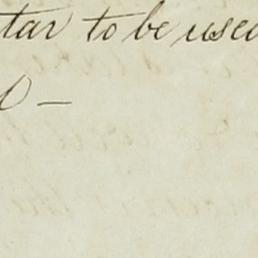 tar to be used